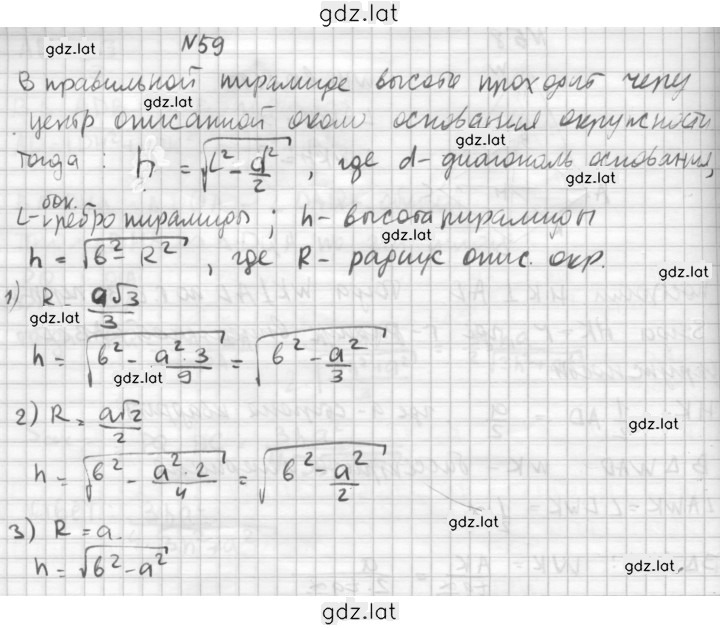 gdz.lat
№59
gdz.lat
В правильной пирамиде высота проходит через
gdz.lat
центр описанной около основания окружности
gdz.lat
тогда : h = √(L² - d²/2) , где d - диагональ основания,
gdz.lat
L - бок. ребро пирамиды ; h - высота пирамиды
gdz.lat
h = √(b² - R²) , где R - радиус опис. окр.
gdz.lat
1) R = a√3/3
gdz.lat
h = √(b² - a²·3/9) = √(b² - a²/3)
gdz.lat
2) R = a√2/2
gdz.lat
h = √(b² - a²·2/4) = √(b² - a²/2)
gdz.lat
3) R = a
h = √(b² - a²)
gdz.lat
gdz.lat